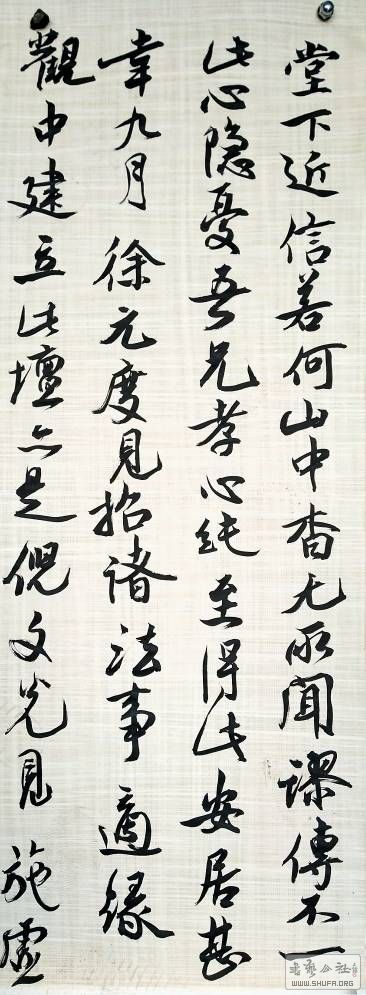 堂下近信若何山中杳无所闻謬傳不一
此心隐憂吾兄孝心純至得此安居甚
幸九月徐元度見招诸法事適缘
觀中建立此壇亦是倪文光見施虚
书艺公社
WWW.SHUFA.ORG